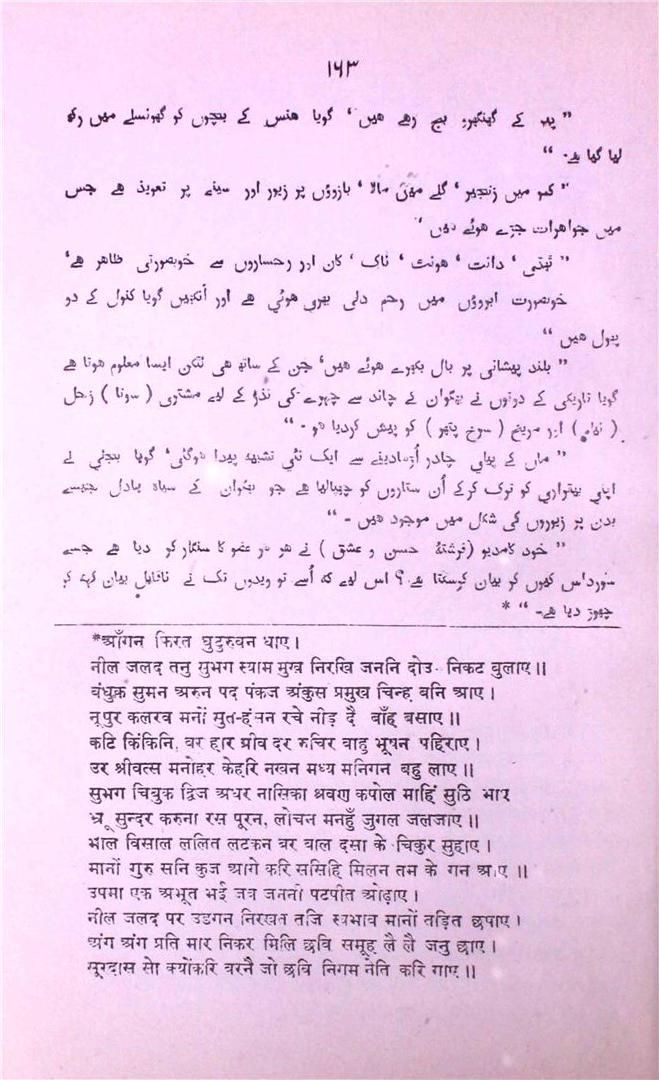 ۱۶۳
” پیر کے گھنگھرو بج رهے هیں‘ گویا هنس کے بچوں کو گھونسلے میں رکھ
لیا گیا هے۔ “
” کمر میں زنجیر‘ گلے میں مالا‘ بازوؤں پر زیور اور سینے پر تعویذ هے جس
میں جواهرات جڑے هوئے هیں “
” ٹھڈی‘ دانت‘ هونٹ‘ ناک‘ کان اور رخساروں سے خوبصورتی ظاهر هے‘
خوبصورت ابروؤں میں رحم دلی بھری هوئی هے اور آنکھیں گویا کنول کے دو
پھول هیں “
” بلند پیشانی پر بال بکھرے هوئے هیں‘ جن کے ساتھ هی لٹکن ایسا معلوم هوتا هے
گویا تاریکی کے دوتوں نے بھگوان کے چاند سے چہرے کی نذر کے لیے مشتری ( سونا ) زحل
( نیلم ) اور مریخ ( سرخ پتھر ) کو پیش کردیا هو - “
” ماں کے پیلی چادر اُڑهادینے سے ایک نئی تشبیه پیدا هوگئی‘ گویا بجلی نے
اپنی بیقراری کو ترک کرکے اُن ستاروں کو چھپالیا هے جو بھگوان کے سیاه بادل جیسے
بدن پر زیوروں کی شکل میں موجود هیں - “
” خود کامدیو (فرشتهٔ حسن و عشق ) نے هر هر عضو کا سنگار کر دیا هے جسے
سورداس کیوں کر بیان کرسکتا هے؟ اس لیے که اُسے تو ویدوں تک نے ناقابل بیان کہه کر
چھوڑ دیا هے۔ “ *
*आँगन फिरत घुटुरुवन धाए।
नील जलद तनु सुभग स्याम मुख निरखि जननि दोउ निकट बुलाए॥
बंधुक सुमन अरुन पद पंकज अंकुस प्रमुख चिन्ह बनि आए।
नूपुर कलरव मनों सुत-हंसन रचे नीड़ दै बाँह बसाए॥
कटि किंकिनि, वर हार ग्रीव दर रुचिर बाहु भूषन पहिराए।
उर श्रीवत्स मनोहर केहरि नखन मध्य मनिगन बहु लाए॥
सुभग चिबुक द्विज अधर नासिका श्रवण कपोल माहिं सुठि भाए
भ्रू सुन्दर करुना रस पूरन, लोचन मनहुँ जुगल जलजाए॥
भाल विसाल ललित लटकन वर बाल दसा के चिकुर सुहाए।
मानों गुरु सनि कुज आगे करि ससिहि मिलन तम के गन आए॥
उपमा एक अभूत भई जव जननी पटपीत ओढ़ाए।
नील जलद पर उडगन निरखत तजि स्वभाव मानों तड़ित छपाए।
अंग अंग प्रति मार निकर मिलि छवि समूह लै लै जनु छाए।
सूरदास सो क्योंकरि वरनै जो छवि निगम नेति करि गाए॥